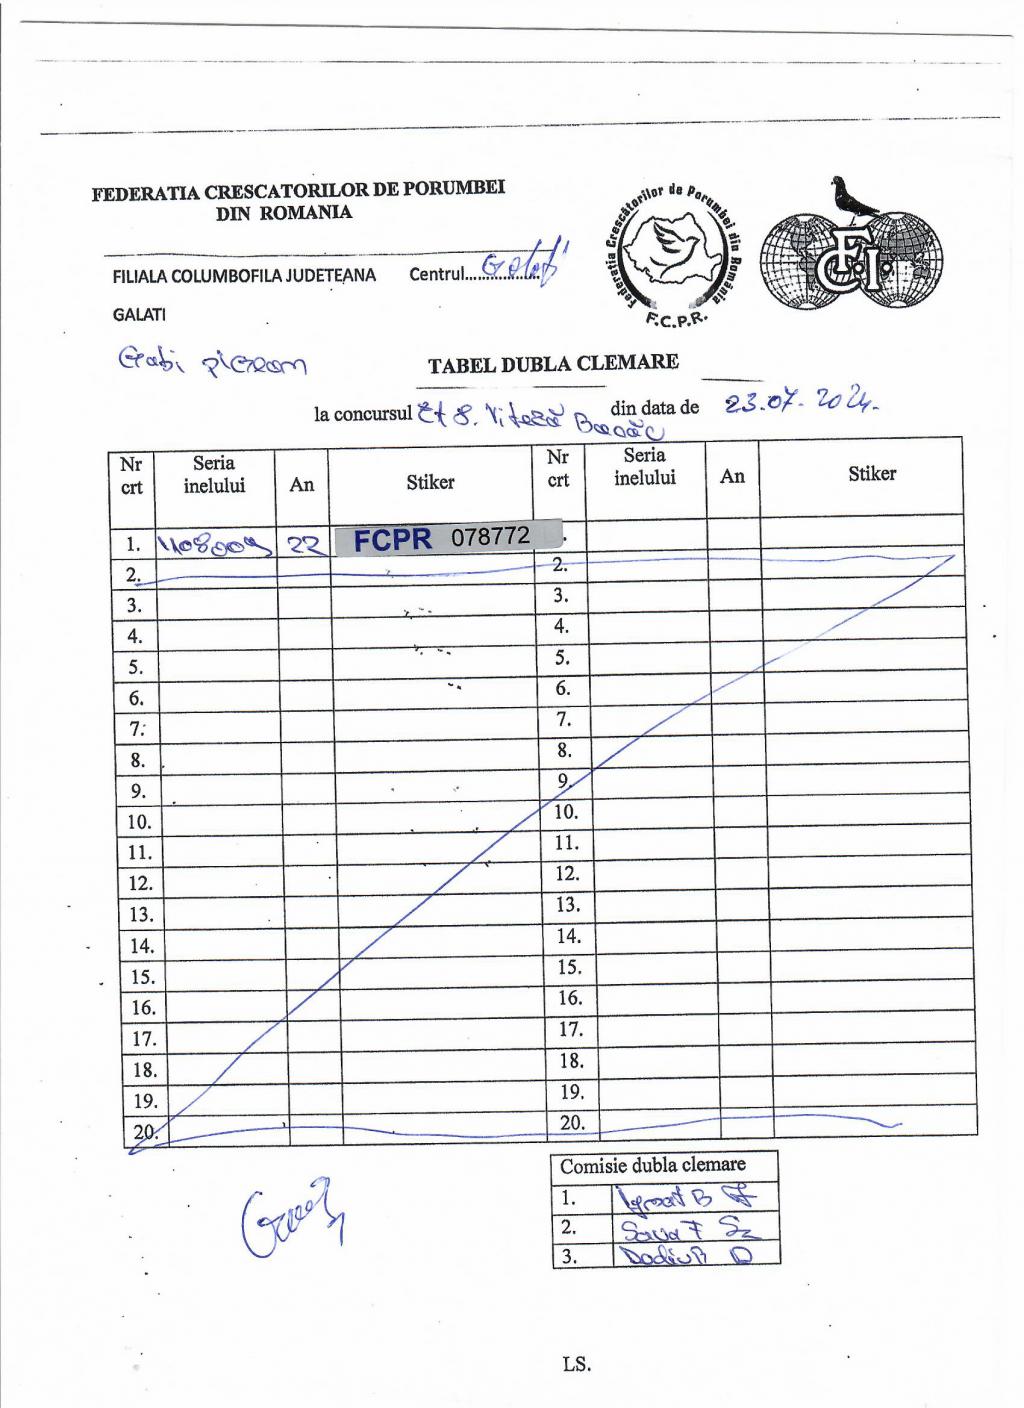 FEDERATIA CRESCATORILOR DE PORUMBEI
DIN ROMANIA
Federatia Crescătorilor de Porumbei din România
F.C.P.R.
F.C.I.
FILIALA COLUMBOFILA JUDETEANA Centrul.................. Galati
GALATI
Gabi pigeon
TABEL DUBLA CLEMARE
la concursul Et 8. Viteză Bacău din data de 23.07.2024.
Nr crt Seria inelului An Stiker Nr crt Seria inelului An Stiker
1. 1108009 22 FCPR 078772
2. 2.
3. 3.
4. 4.
5. 5.
6. 6.
7. 7.
8. 8.
9. 9.
10. 10.
11. 11.
12. 12.
13. 13.
14. 14.
15. 15.
16. 16.
17. 17.
18. 18.
19. 19.
20. 20.
Comisie dubla clemare
1. Ignat B
2. Sava F
3.
LS.